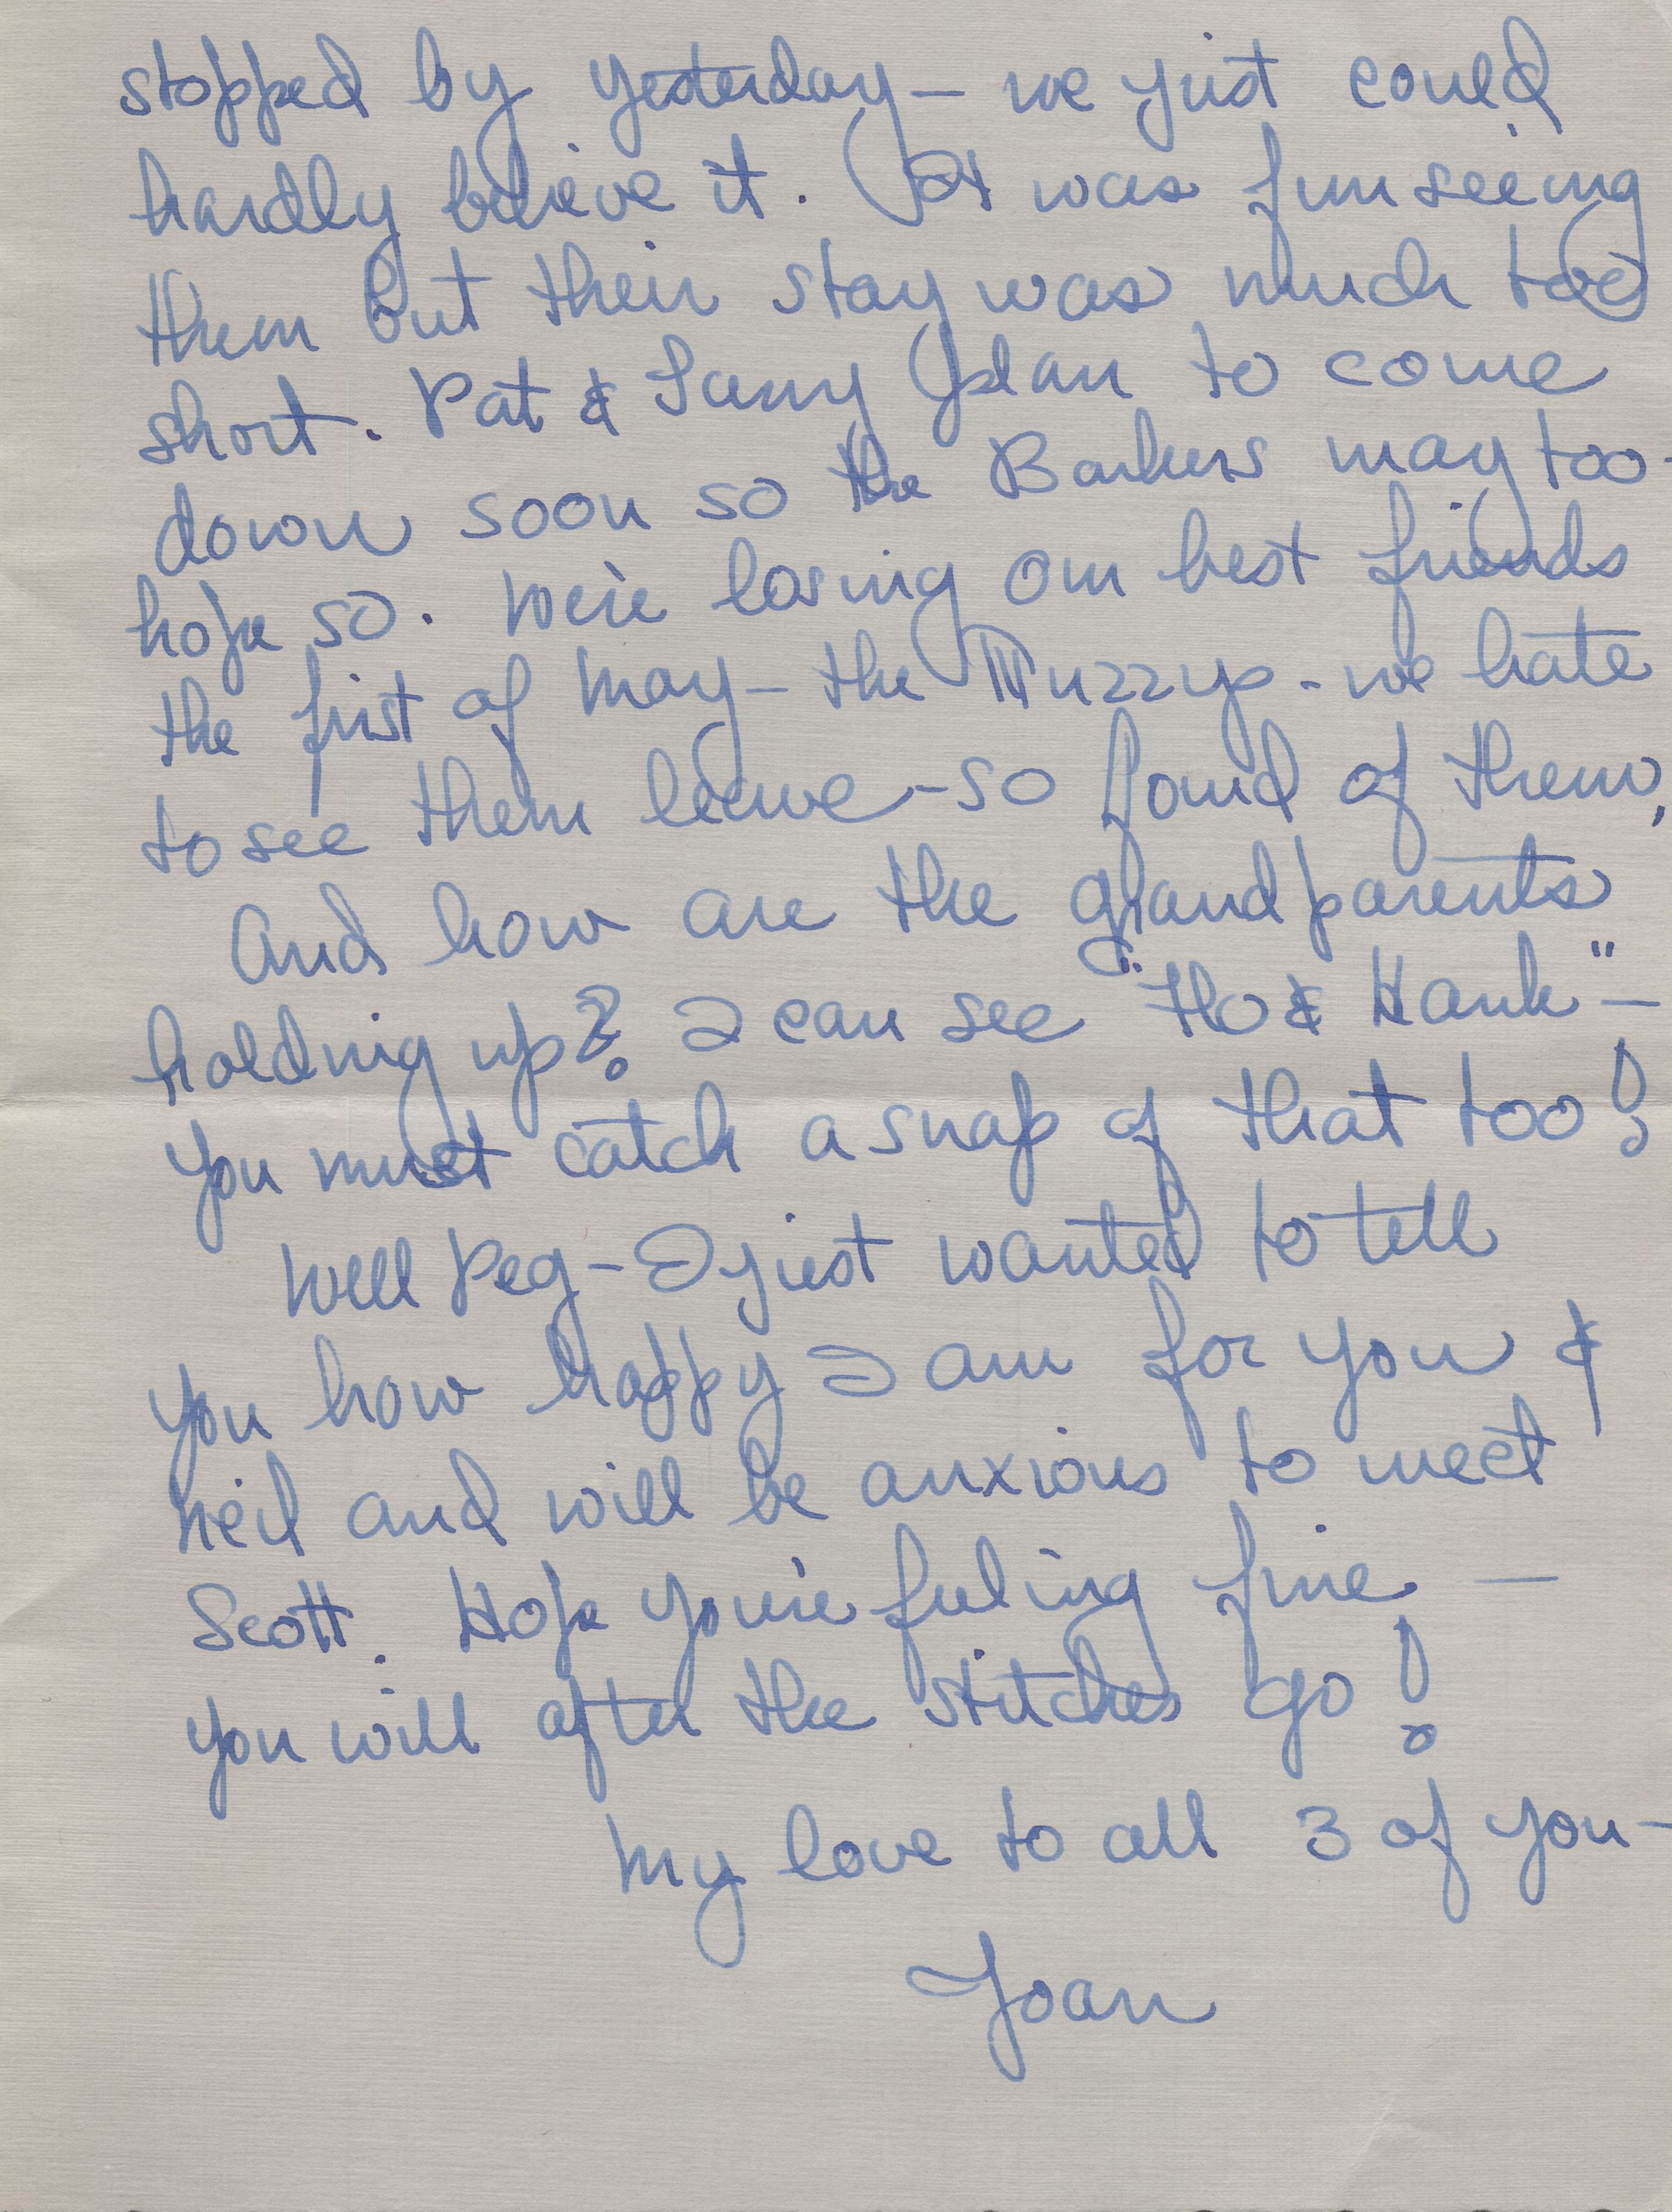 stopped by yesterday — we just could
hardly believe it. It was fun seeing
them but their stay was much too
short. Pat & Larry plan to come
down soon so the Barkers may too -
hope so. We're losing our best friends
the first of May — the Muzzys - we hate
to see them leave - so fond of them.
And how are the grandparents
holding up? I can see "Flo & Hank" —
You must catch a snap of that too!
Well Peg - I just wanted to tell
you how happy I am for you &
Neil and will be anxious to meet
Scott. Hope you're feeling fine —
you will after the stitches go!
My love to all 3 of you -
Joan